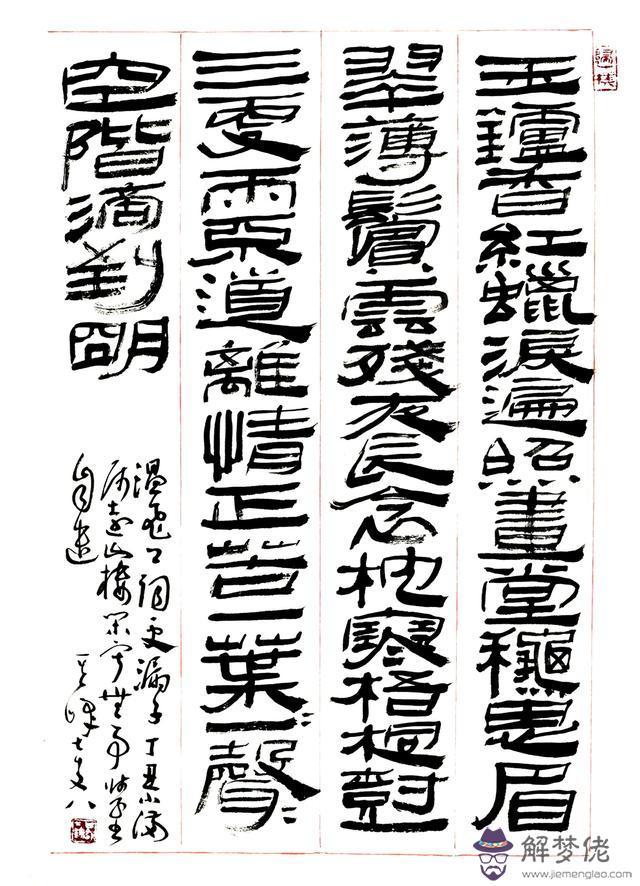 玉鑪香紅蠟淚遍照畫堂龝思眉
翠薄鬢雲殘夜長念枕寒梧桐樹
三更雨不道離情正苦一葉〻一聲〻
空階滴到朙
溫飛卿詞更漏子丁丑小滿
山樓
自遣
解梦佬
www.jiemenglao.com